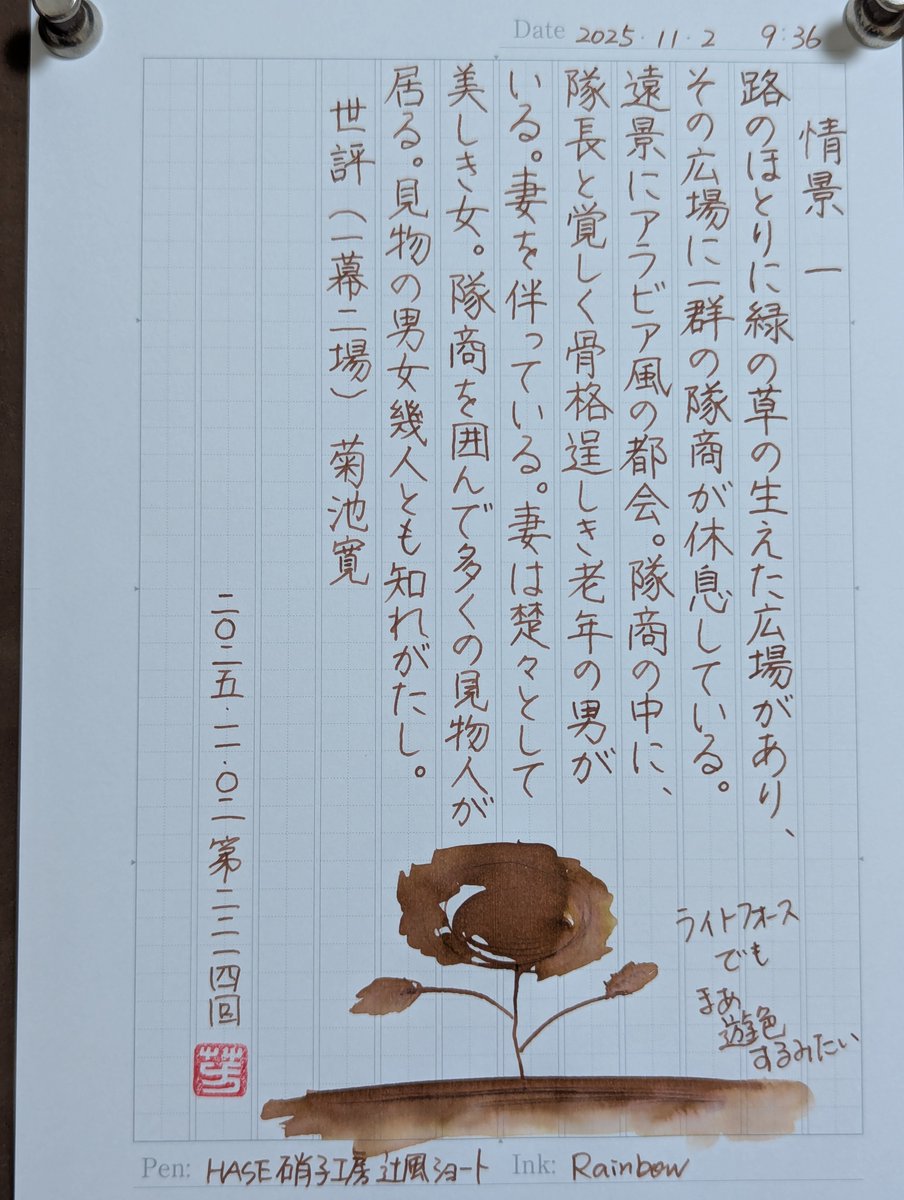 Date 2025.11.2 9:36
情景 一
路のほとりに緑の草の生えた広場があり、
その広場に一群の隊商が休息している。
遠景にアラビア風の都会。隊商の中に、
隊長と覚しく骨格逞しき老年の男が
いる。妻を伴っている。妻は楚々として
美しき女。隊商を囲んで多くの見物人が
居る。見物の男女幾人とも知れがたし。
世評（一幕二場） 菊池寛
二〇二五・一一・〇二 第二二一四回
ライトフォース
でも
まあ
遊色
するみたい
Pen: HASE硝子工房 辻風ショート Ink: Rainbow